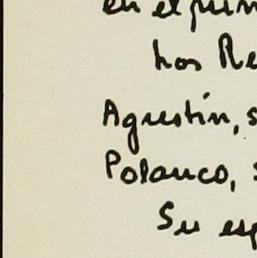 en el prim
los Re
Agustín, s
Polanco, s
Su esp